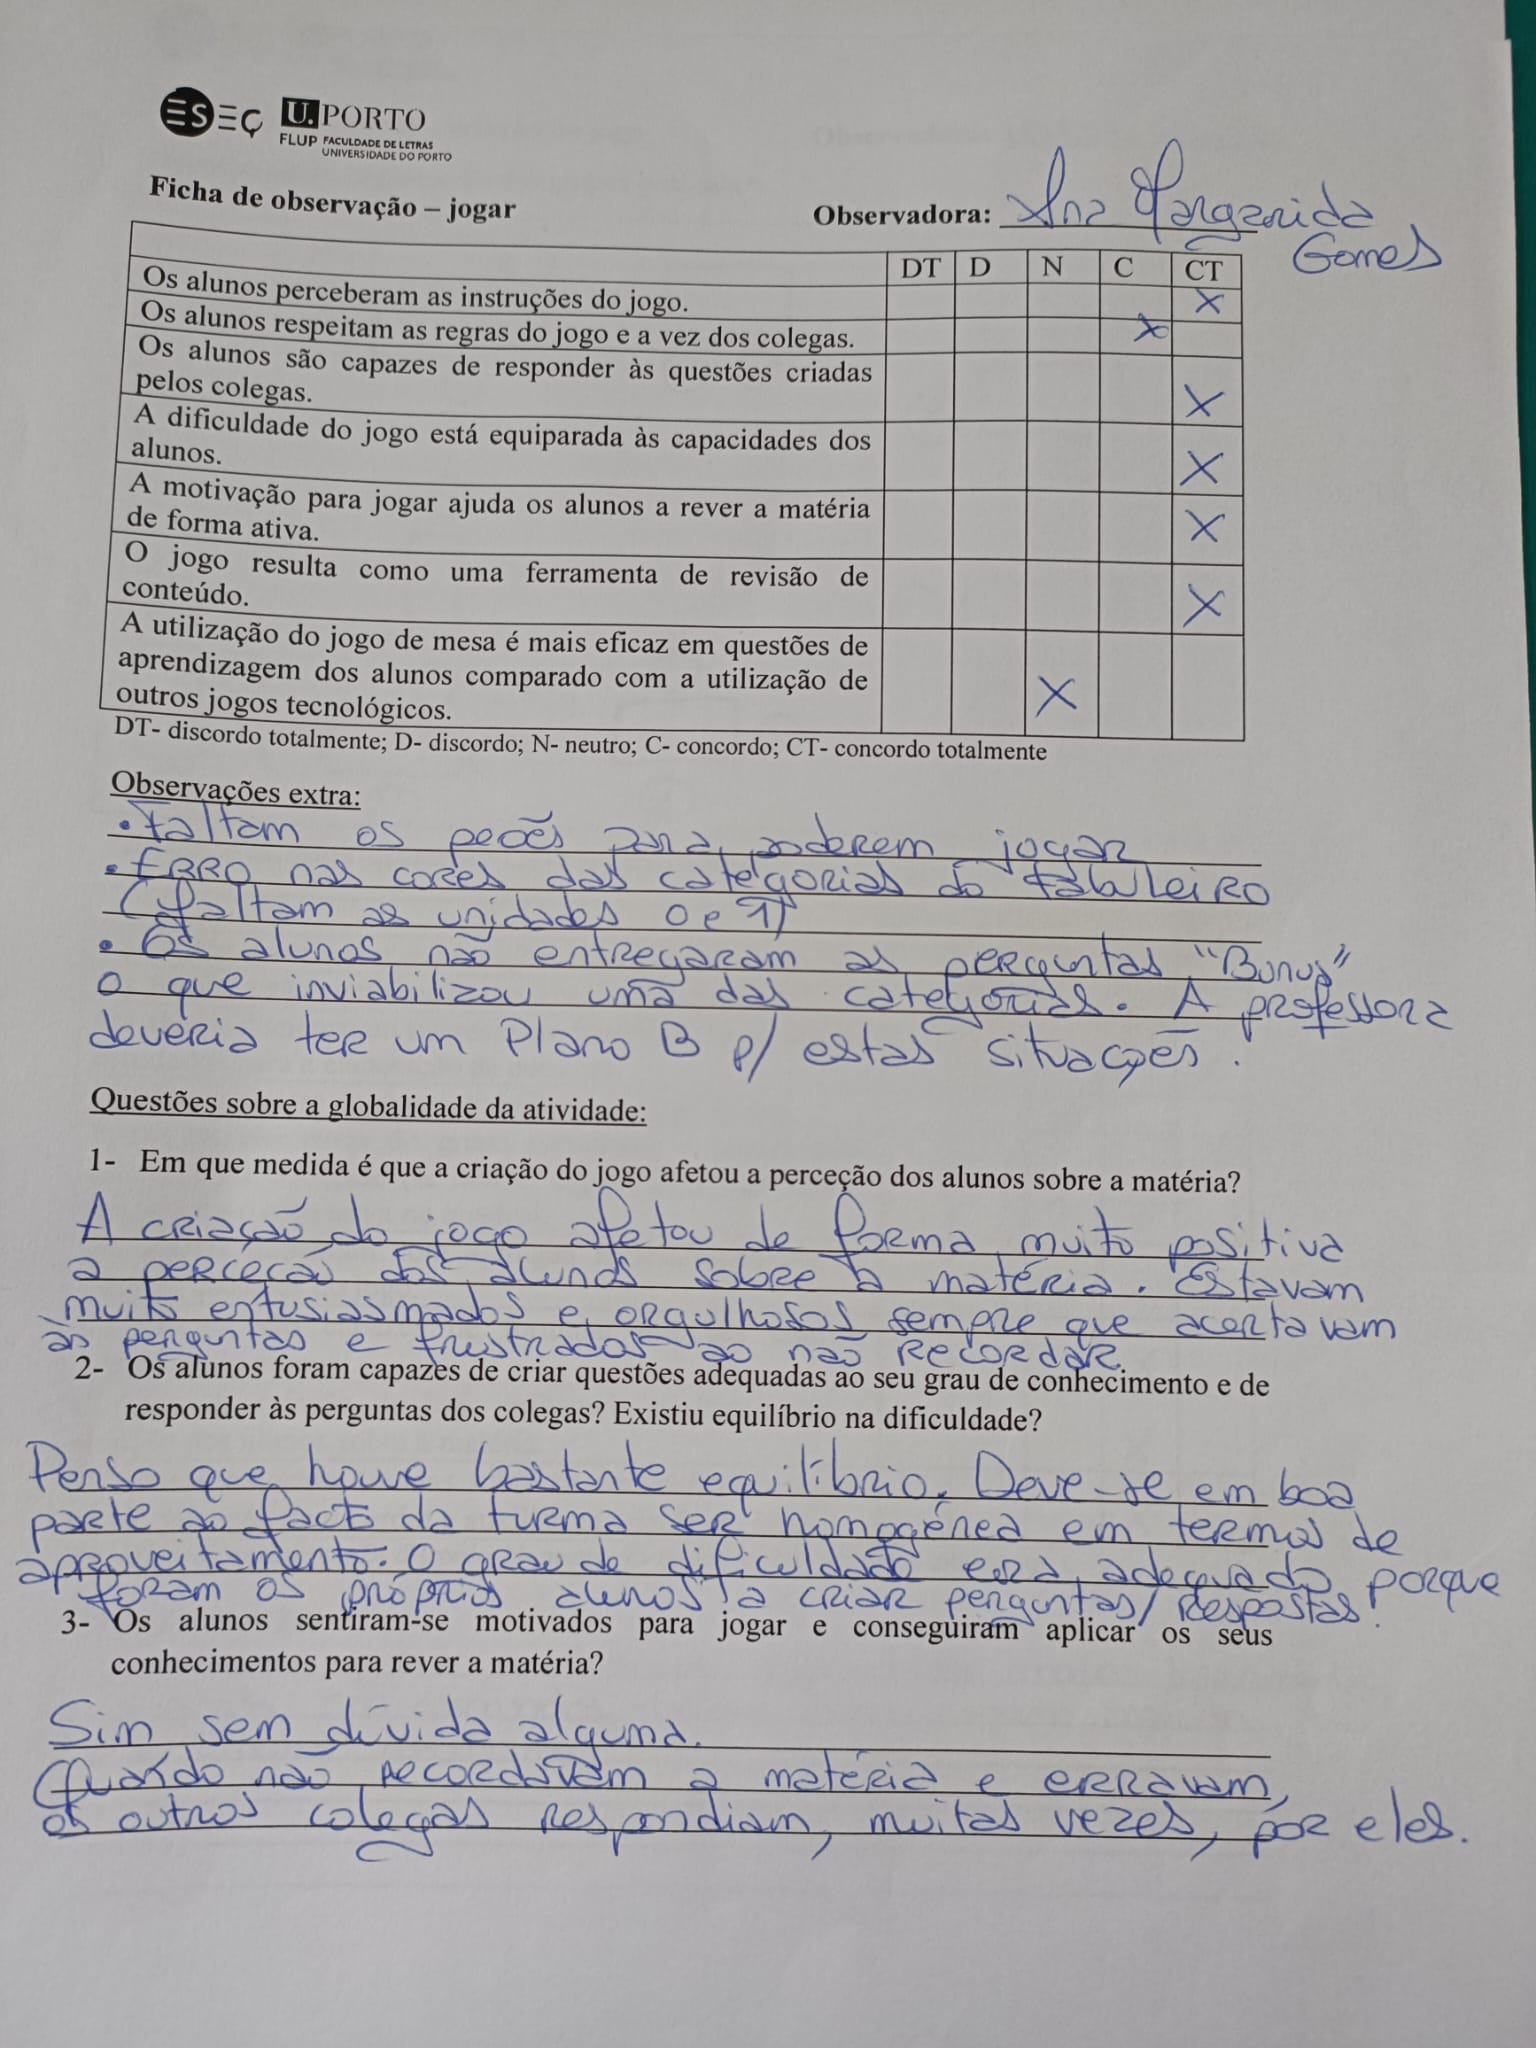 ESEÇ U.PORTO
FLUP FACULDADE DE LETRAS
UNIVERSIDADE DO PORTO
Ficha de observação – jogar
Observadora: Ana Margarida
Gomes
DT D N C CT
Os alunos perceberam as instruções do jogo. X
Os alunos respeitam as regras do jogo e a vez dos colegas. X
Os alunos são capazes de responder às questões criadas
pelos colegas. X
A dificuldade do jogo está equiparada às capacidades dos
alunos. X
A motivação para jogar ajuda os alunos a rever a matéria
de forma ativa. X
O jogo resulta como uma ferramenta de revisão de
conteúdo. X
A utilização do jogo de mesa é mais eficaz em questões de
aprendizagem dos alunos comparado com a utilização de
outros jogos tecnológicos. X
DT- discordo totalmente; D- discordo; N- neutro; C- concordo; CT- concordo totalmente
Observações extra:
• Faltam os peões para poderem jogar
• Erro nas cores das categorias do tabuleiro
(faltam as unidades 0 e 1)
• Os alunos não entregaram as perguntas "Bónus"
o que inviabilizou uma das categorias. A professora
deveria ter um Plano B p/ estas situações.
Questões sobre a globalidade da atividade:
1- Em que medida é que a criação do jogo afetou a perceção dos alunos sobre a matéria?
A criação do jogo afetou de forma muito positiva
a perceção dos alunos sobre a matéria. Estavam
muito entusiasmados e orgulhosos sempre que acertavam
às perguntas e frustrados ao não recordar.
2- Os alunos foram capazes de criar questões adequadas ao seu grau de conhecimento e de
responder às perguntas dos colegas? Existiu equilíbrio na dificuldade?
Penso que houve bastante equilíbrio. Deve-se em boa
parte ao facto da turma ser homogénea em termos de
aproveitamento. O grau de dificuldade era adequado porque
foram os próprios alunos a criar perguntas/respostas.
3- Os alunos sentiram-se motivados para jogar e conseguiram aplicar os seus
conhecimentos para rever a matéria?
Sim sem dúvida alguma.
Quando não recordavam a matéria e erravam,
os outros colegas respondiam, muitas vezes, por eles.